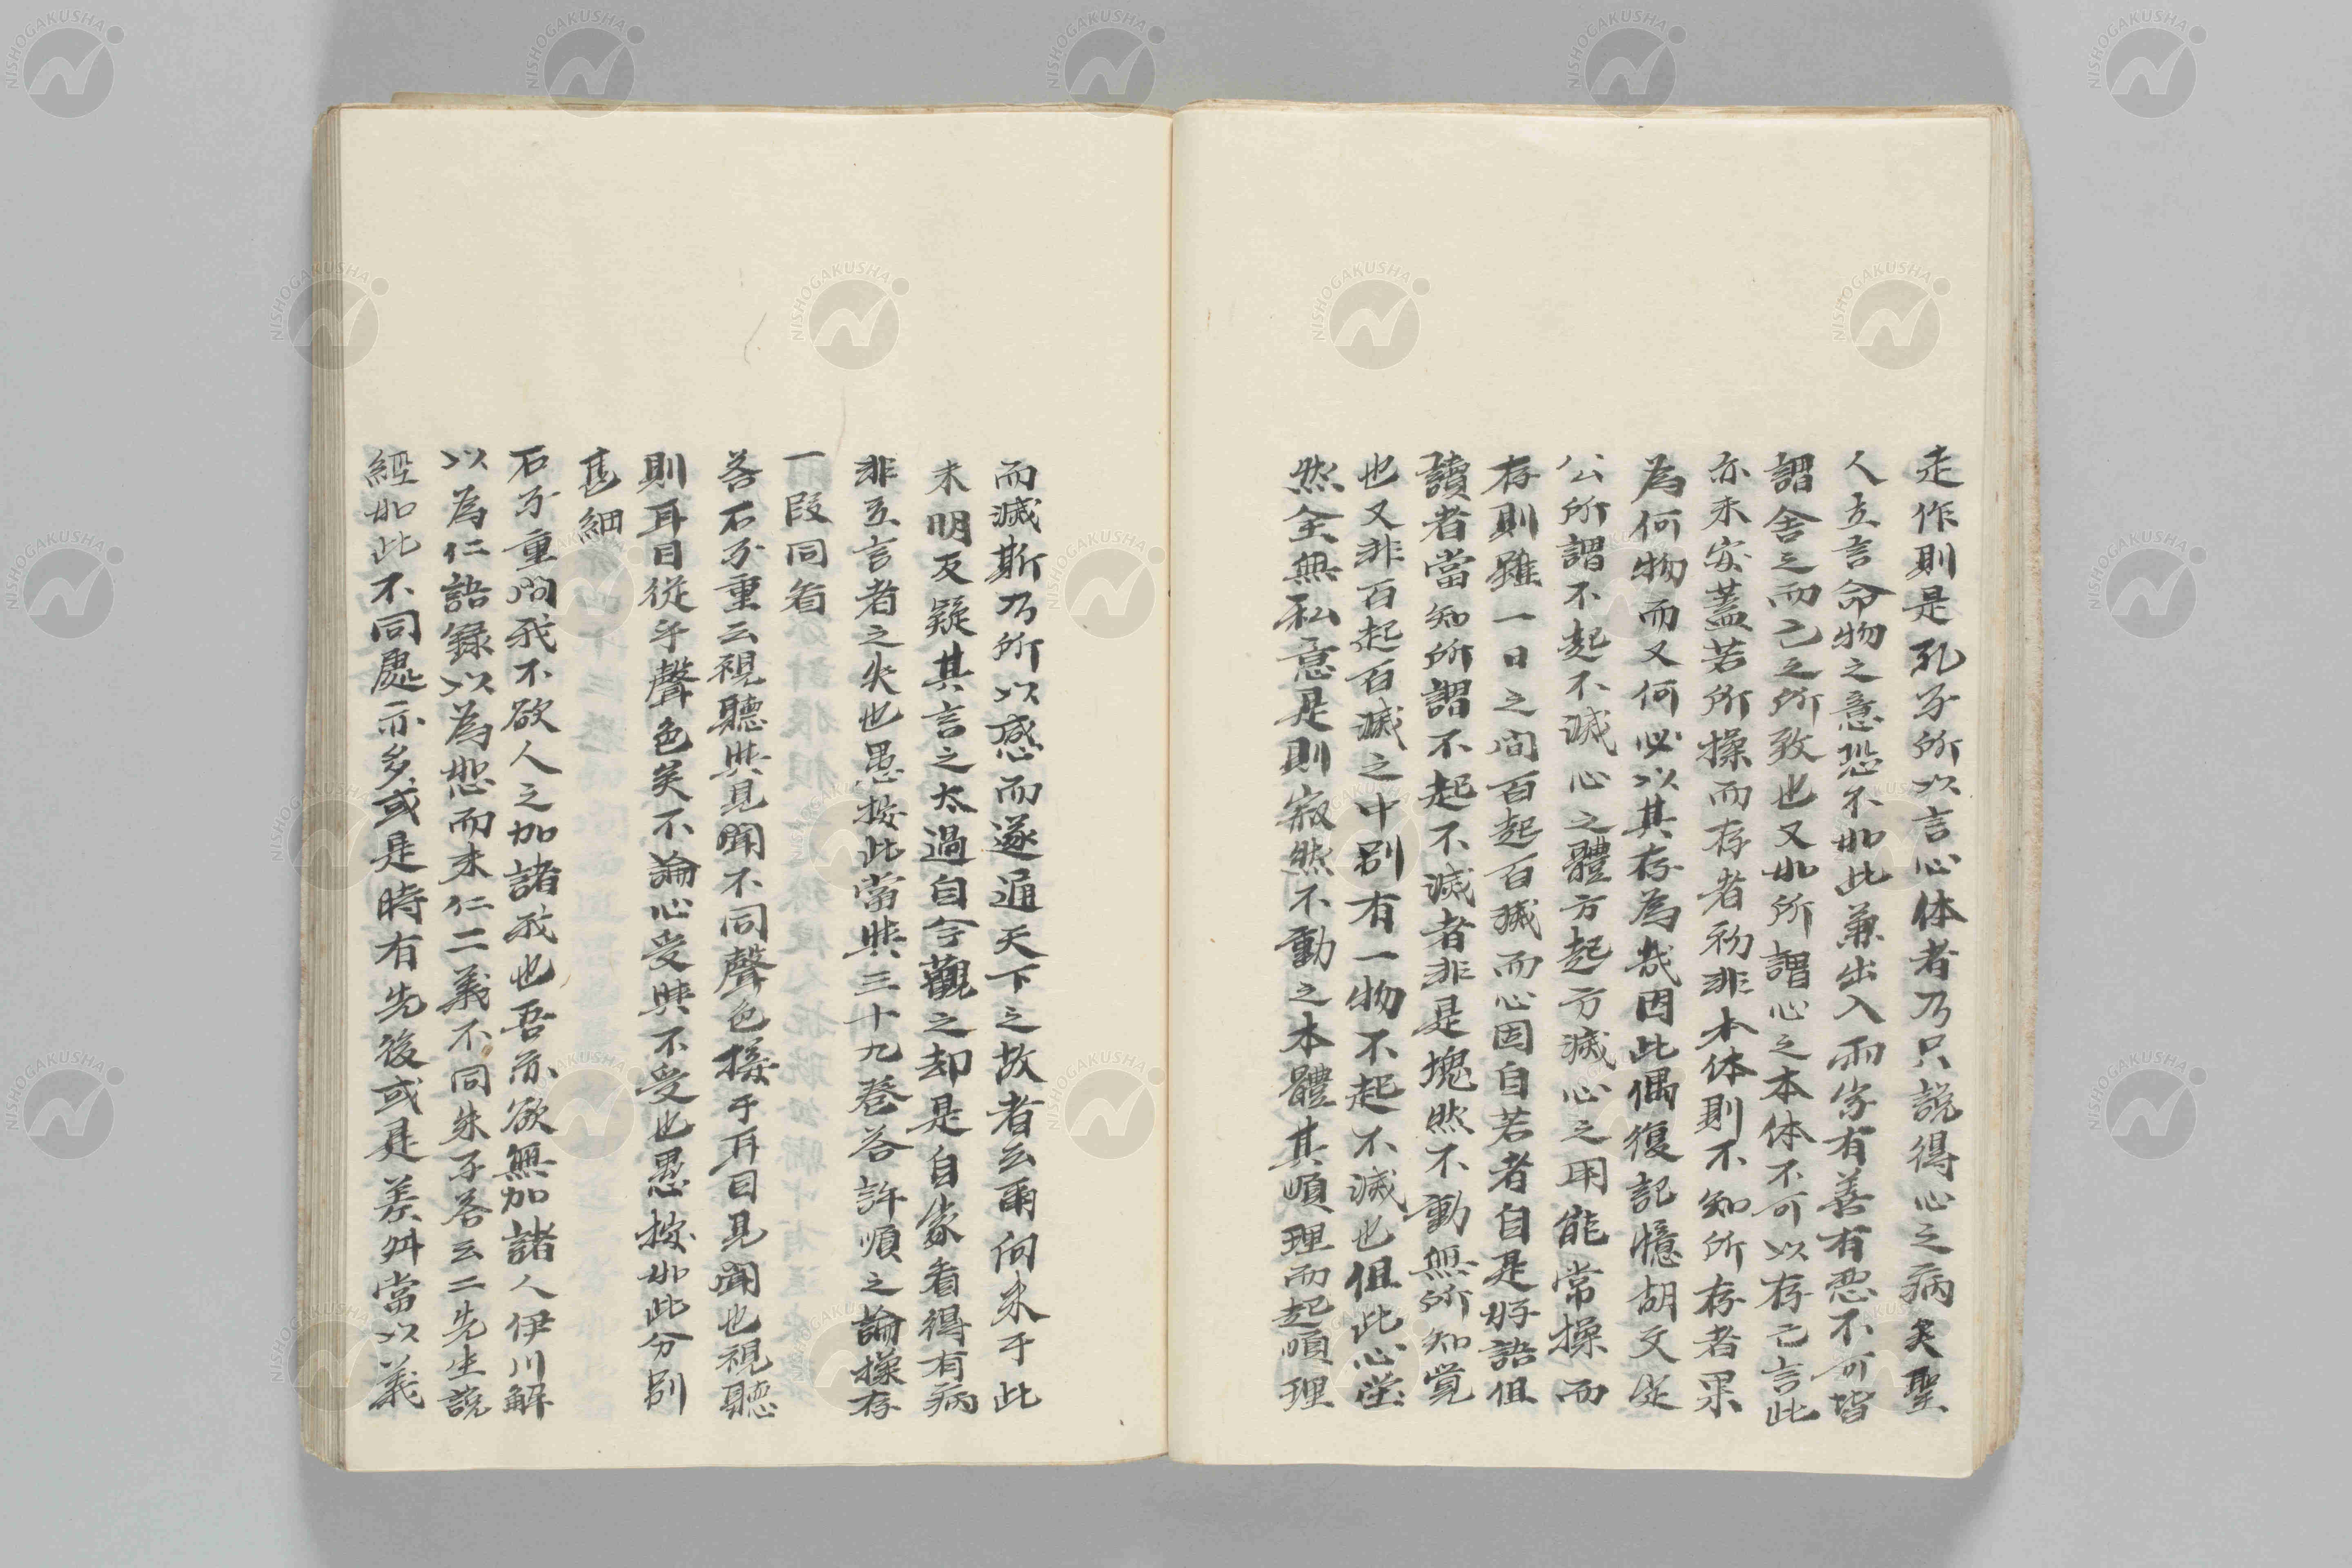 走作則是孔子所以言心体者乃只説得心之病矣聖
人立言命物之意恐不如此兼出入兩字有善有悪不可皆
謂舍之而亡之所致也又如所謂心之本体不可以存亡言此
亦未安蓋若所操而存者初非本体則不知所存者果
為何物而又何必以其存為哉因此偶復記憶胡文定
公所謂不起不滅心之體方起方滅心之用能常操而
存則雖一日之間百起百滅而心固自若者自是好語但
讀者當知所謂不起不滅者非是塊然不動無所知覚
也又非百起百滅之中別有一物不起不滅也但此心瑩
然全無私意是則寂然不動之本體其順理而起順理
而滅斯乃所以感而遂通天下之故者云爾向来于此
未明反疑其言之太過自今觀之却是自家看得有病
非立言者之失也愚按此當與三十九巻答許順之論操存
一段同看
答石子重云視聽與見聞不同聲色接于耳目見聞也視聽
則耳目從乎聲色矣不論心受與不受也愚按如此分別
甚細
石子重問我不欲人之加諸我也吾亦欲無加諸人伊川解
以為仁語録以為恕而未仁二義不同朱子答云二先生説
經如此不同處亦多或是時有先後或是差舛當以義